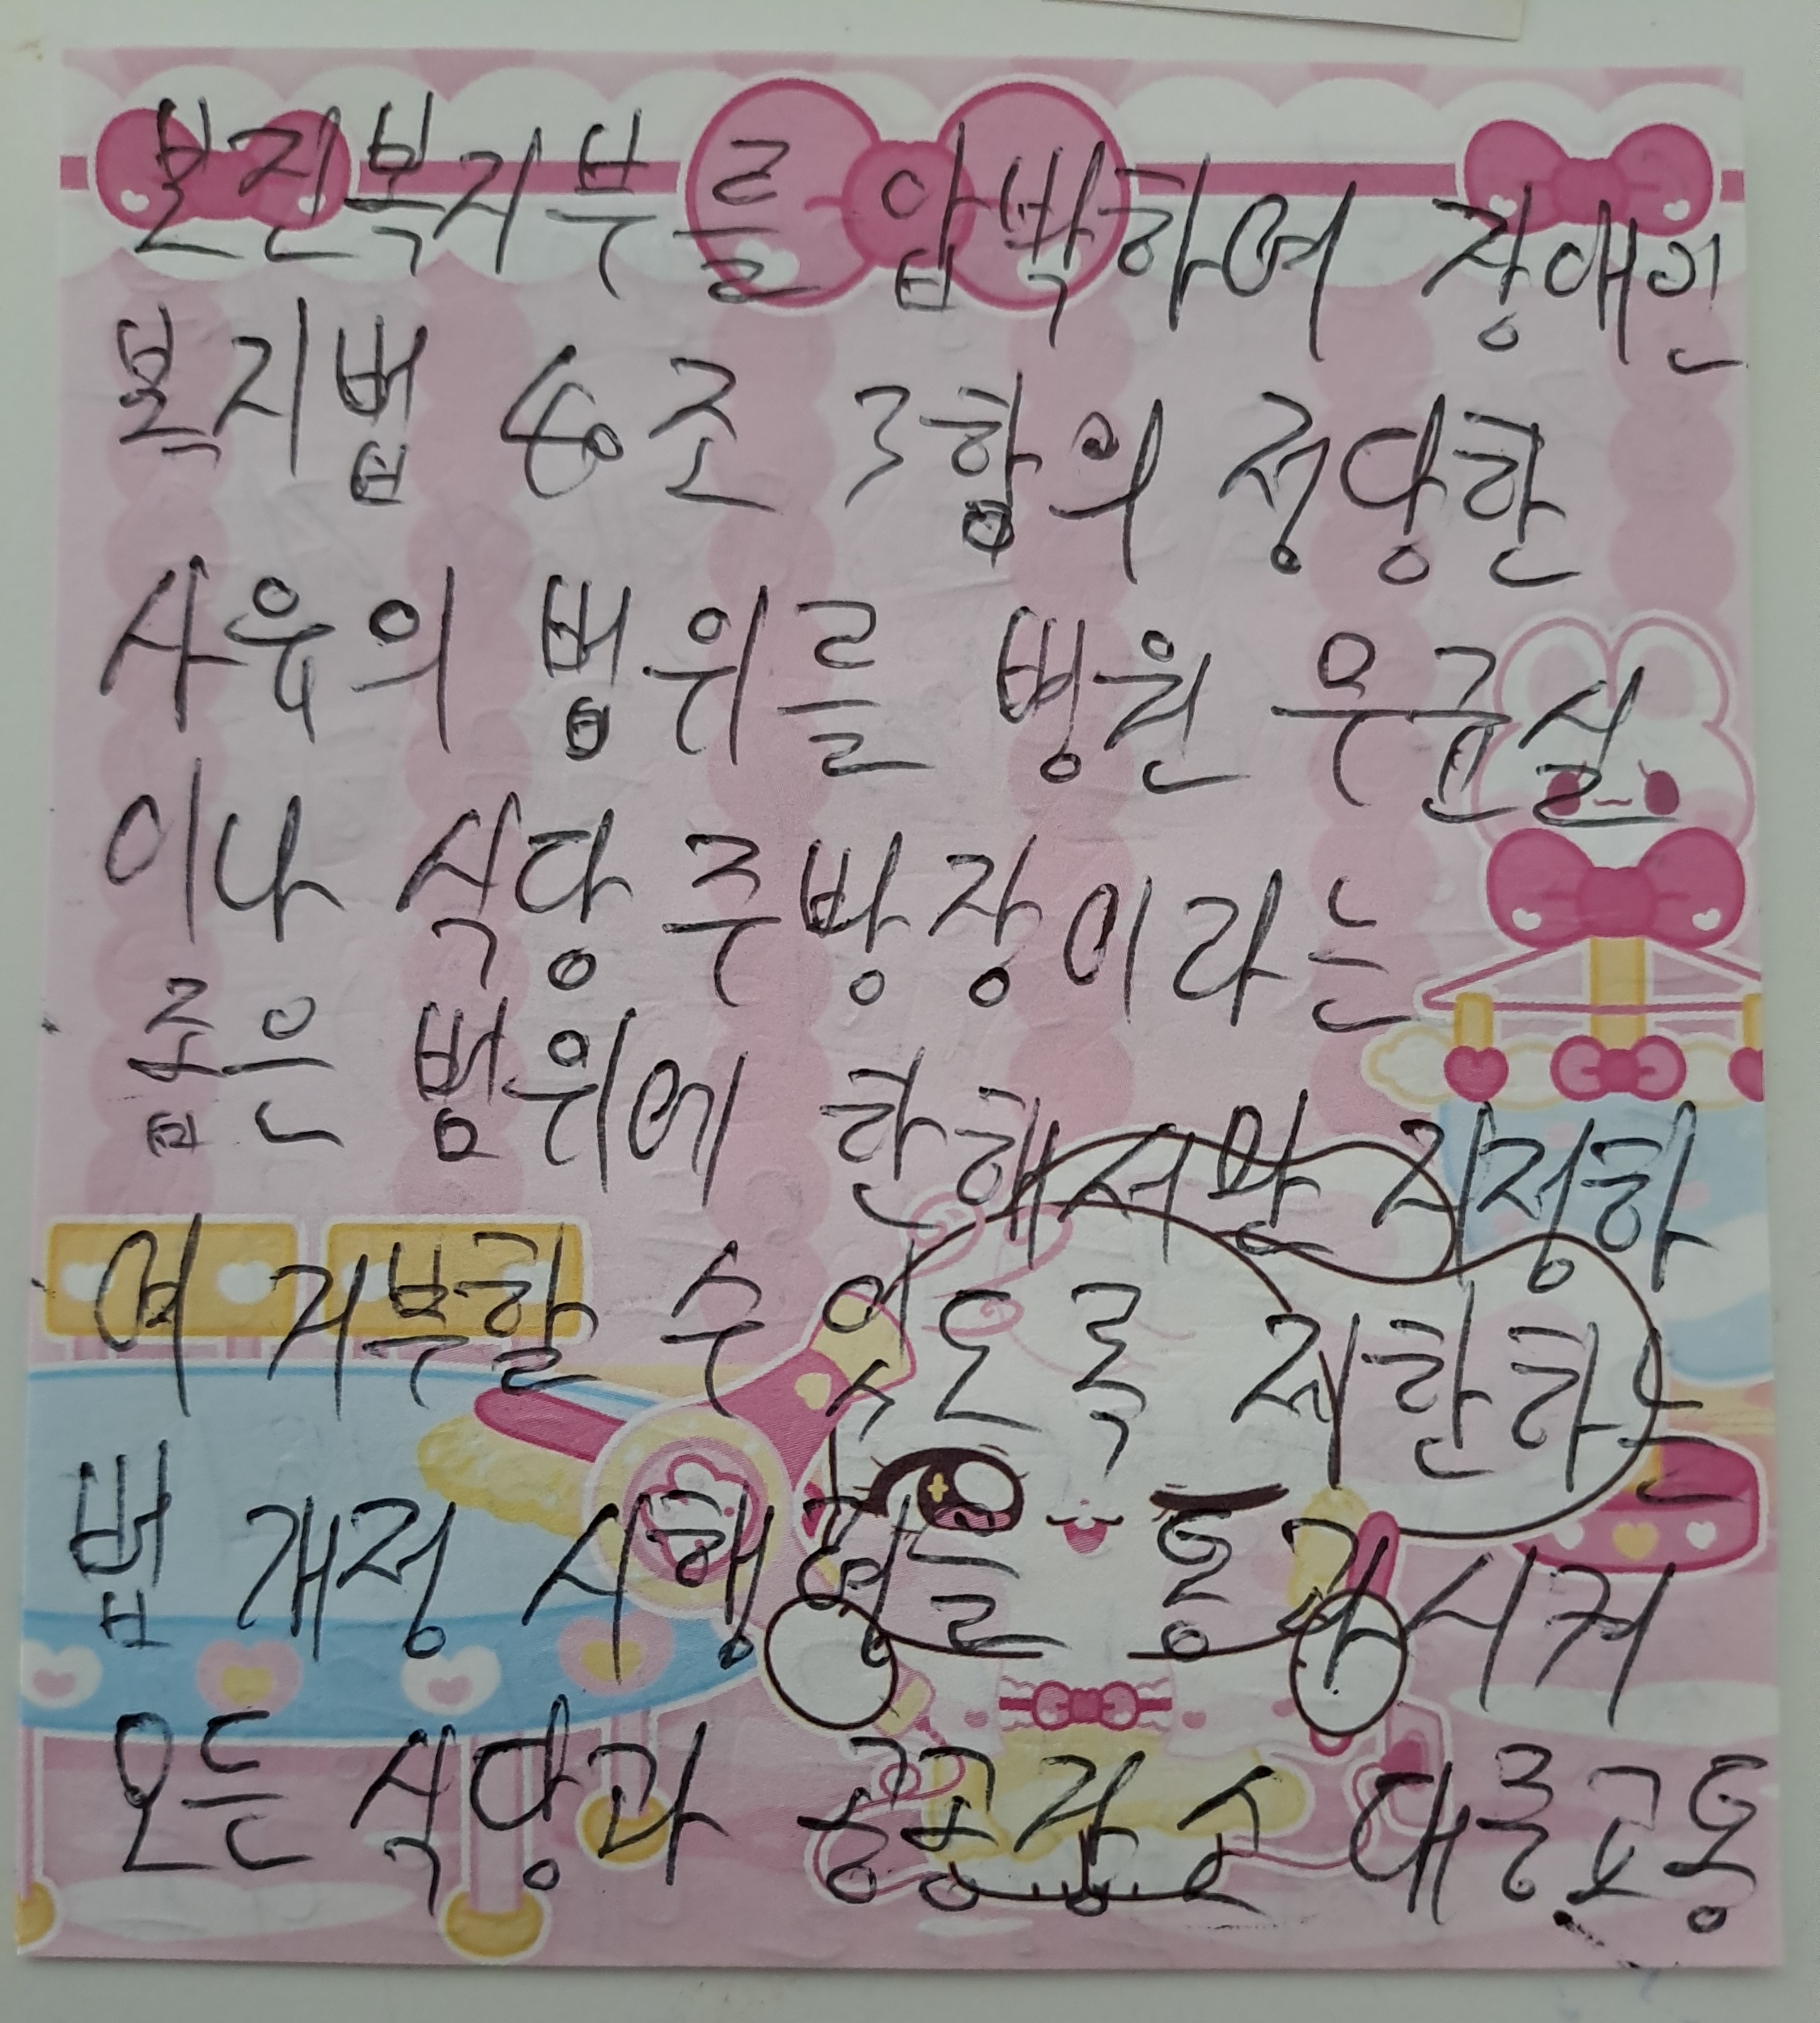 보건복지부를 압박하여 장애인
복지법 40조 3항의 정당한
사유의 범위를 병원 무균실
이나 식당 주방장이라는
좁은 범위에 한해서만 지정하
여 거부할 수 있도록 제한하는
법 개정 시행령을 통과시켜
모든 식당과 공공장소 대중교통